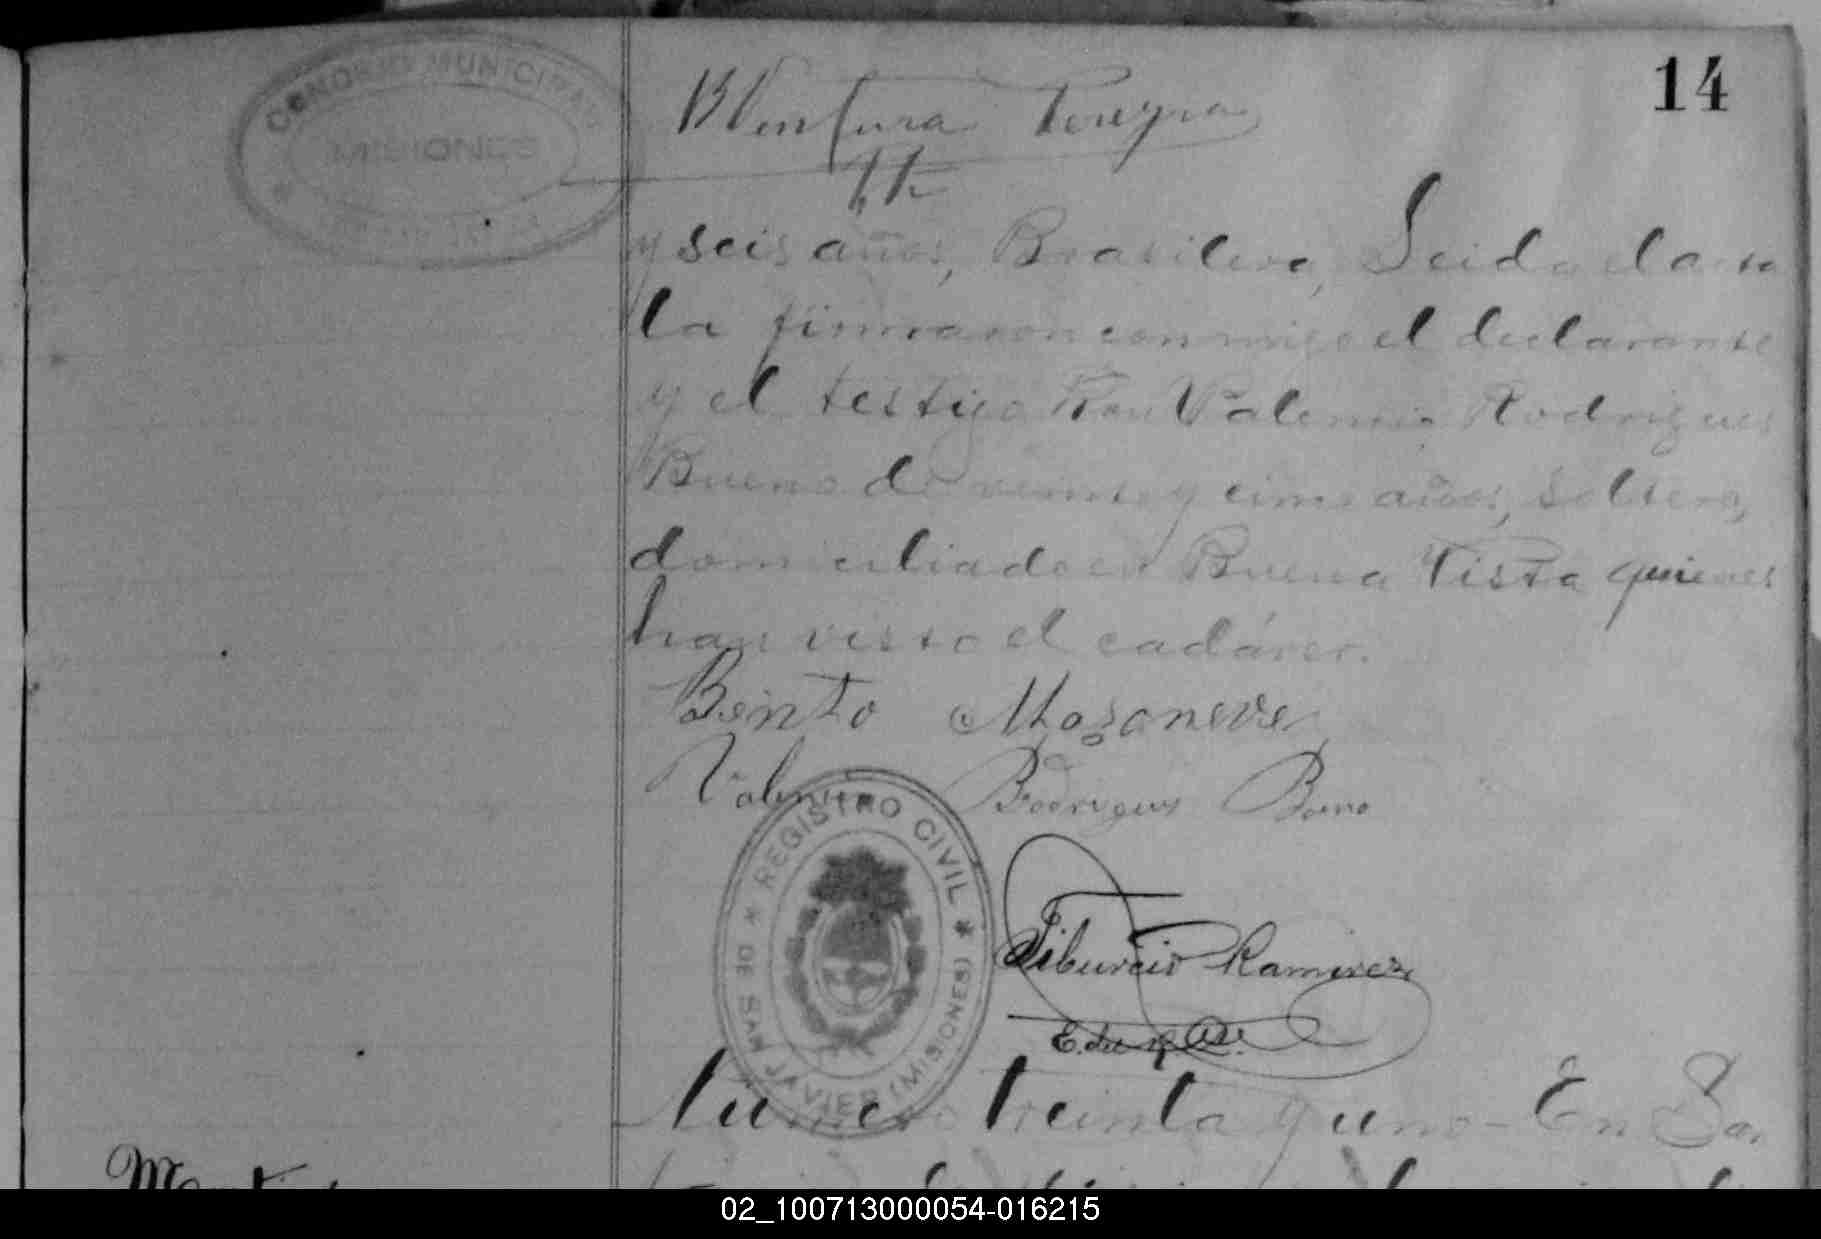 14
CONCEJO MUNICIPAL
MISIONES
Ventura Pereyra
y seis años, Brasilero, Leida el acta
la firmaron conmigo el declarante
y el testigo Don Valerio Rodrigues
Bueno de veinte y cinco años, soltero,
domiciliado en Buena Vista quienes
han visto el cadáver.
Bento
Rodrigues Bueno
REGISTRO CIVIL
DE SAN JAVIER (MISIONES)
Tiburcio Ramirez
Numero treinta y uno - En San
02_100713000054-016215